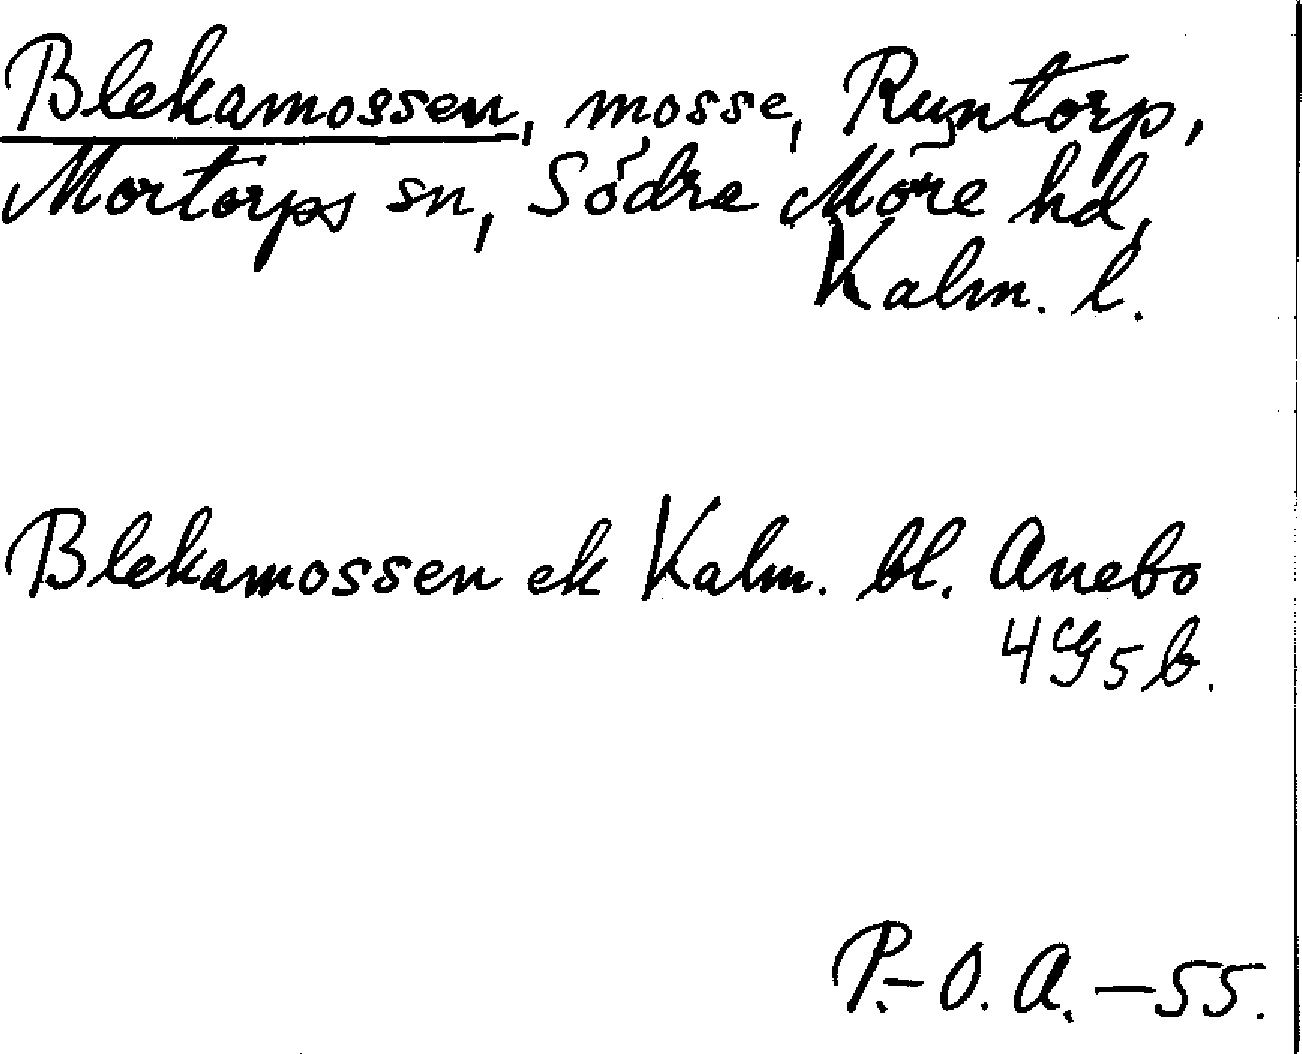 Blekamossen, mosse, Runtorp,
Mortorps sn, Södra Möre hd,
Kalm. l.
Blekamossen ek Kalm. bl. Anebo
4G5b.
P.-O. A. -55.